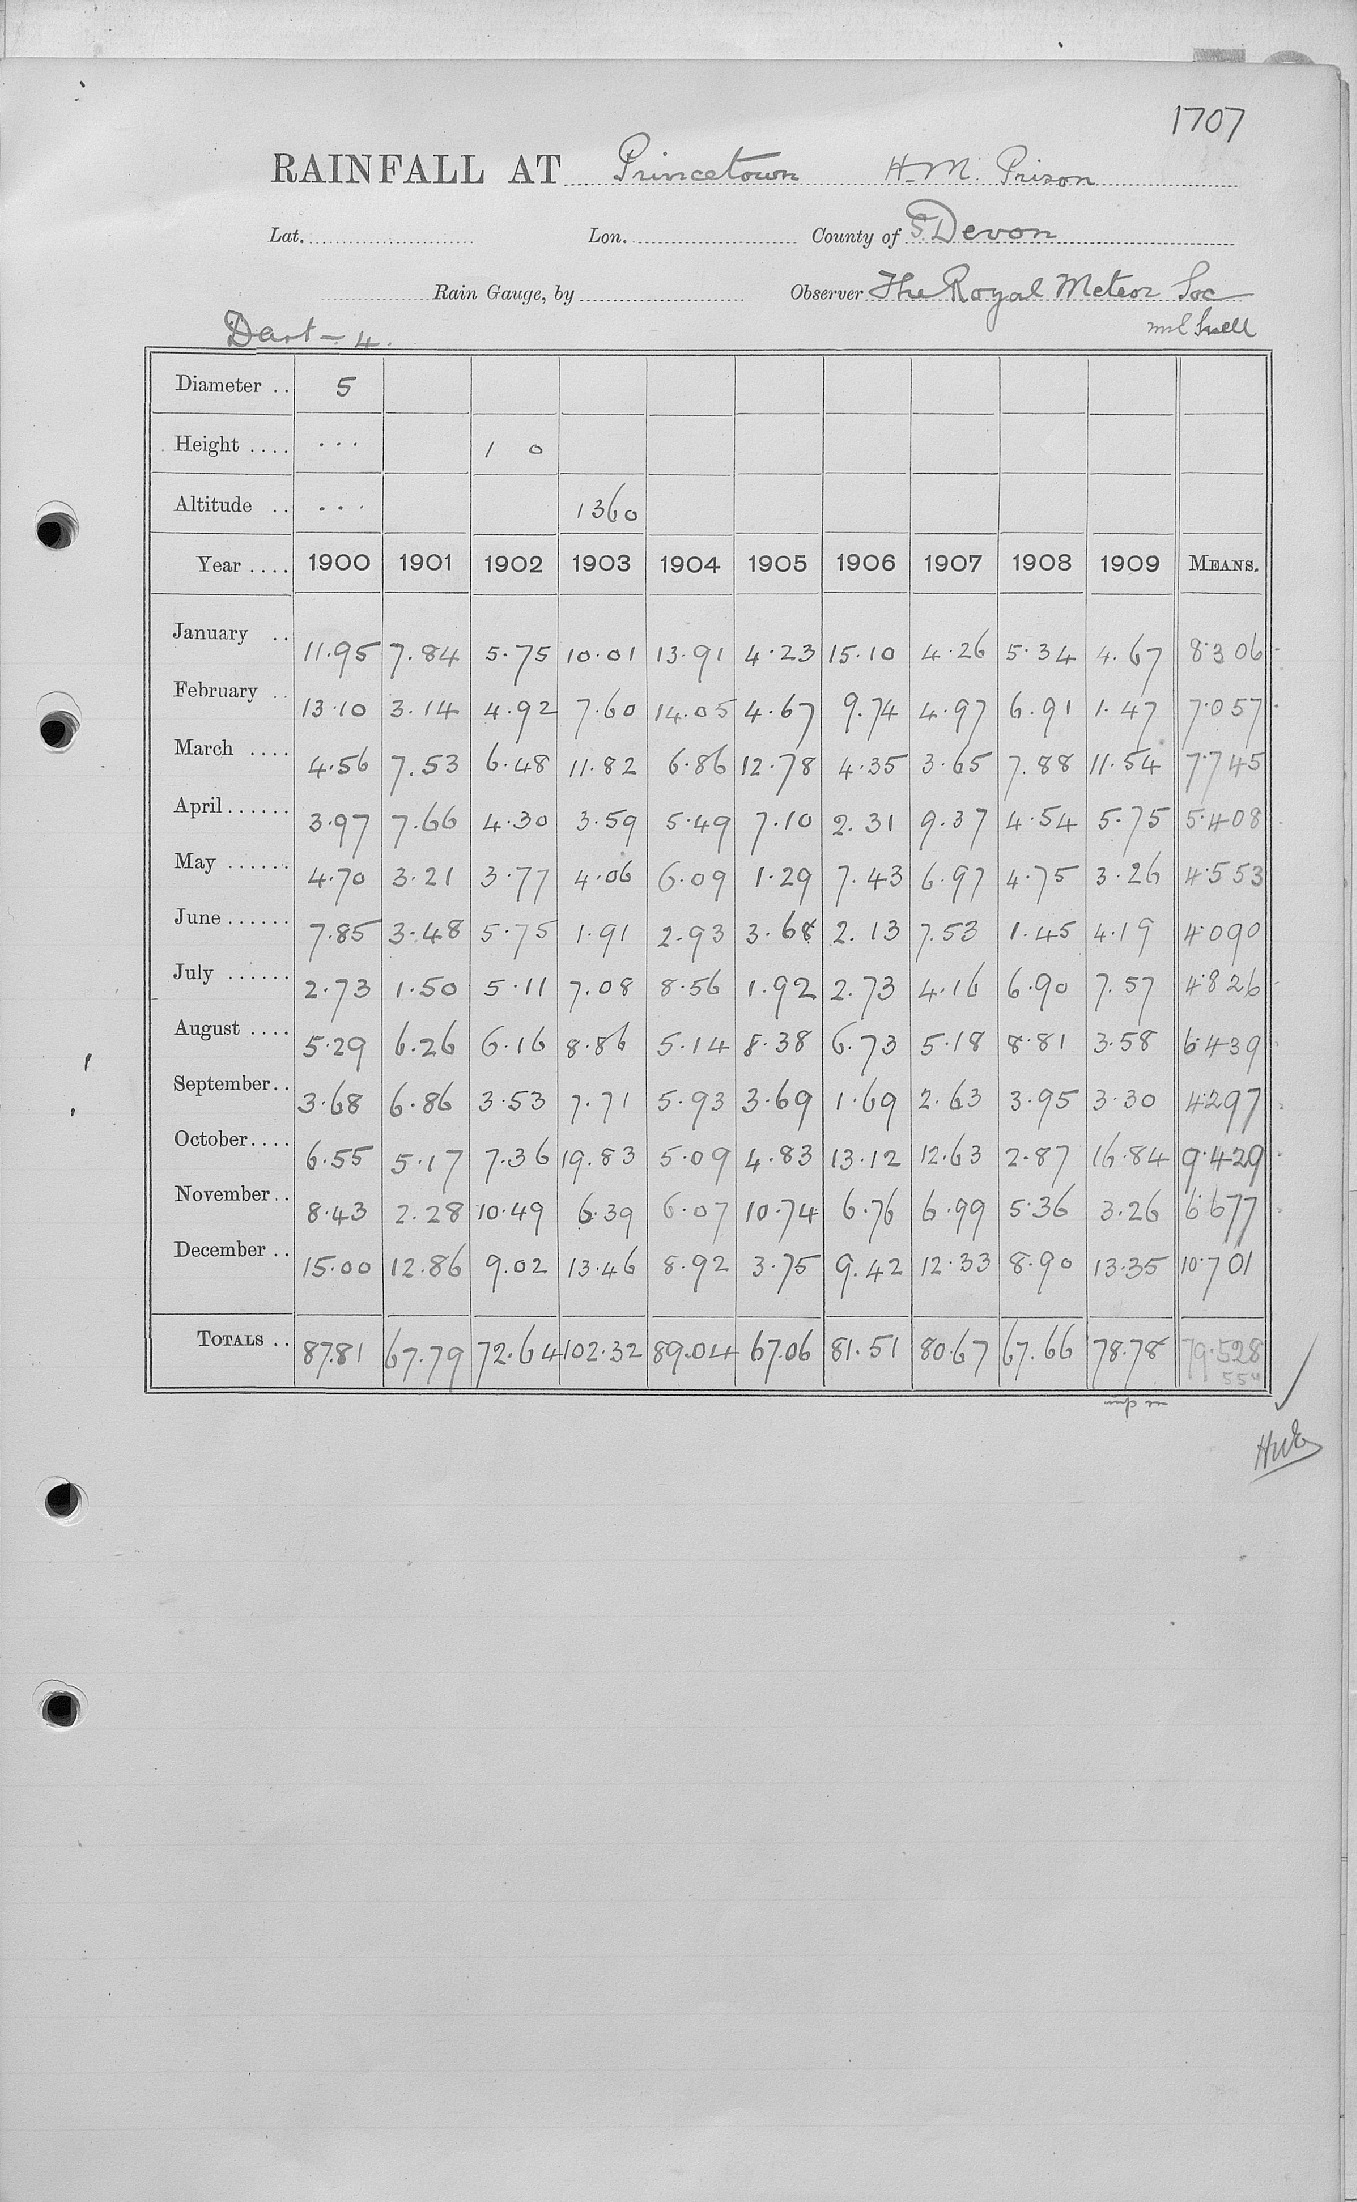 1707
RAINFALL AT Princetown H.M. Prison
Lat. Lon. County of S. Devon
Rain Gauge, by Observer The Royal Meteor Soc
Snell
Dart - 4.
Diameter .. 5
Height .... ... 1 0
Altitude .. ... 1360
Year .... 1900 1901 1902 1903 1904 1905 1906 1907 1908 1909 MEANS.
January .. 11.95 7.84 5.75 10.01 13.91 4.23 15.10 4.26 5.34 4.67 8.306
February .. 13.10 3.14 4.92 7.60 14.05 4.67 9.74 4.97 6.91 1.47 7.057
March .... 4.56 7.53 6.48 11.82 6.86 12.78 4.35 3.65 7.88 11.54 7.745
April...... 3.97 7.66 4.30 3.59 5.49 7.10 2.31 9.37 4.54 5.75 5.408
May ...... 4.70 3.21 3.77 4.06 6.09 1.29 7.43 6.97 4.75 3.26 4.553
June...... 7.85 3.48 5.75 1.91 2.93 3.68 2.13 7.53 1.45 4.19 4.090
July ...... 2.73 1.50 5.11 7.08 8.56 1.92 2.73 4.16 6.90 7.57 4.826
August .... 5.29 6.26 6.16 8.86 5.14 8.38 6.73 5.18 8.81 3.58 6.439
September.. 3.68 6.86 3.53 7.71 5.93 3.69 1.69 2.63 3.95 3.30 4.297
October.... 6.55 5.17 7.36 19.83 5.09 4.83 13.12 12.63 2.87 16.84 9.429
November.. 8.43 2.28 10.49 6.39 6.07 10.74 6.76 6.99 5.36 3.26 6.677
December .. 15.00 12.86 9.02 13.46 8.92 3.75 9.42 12.33 8.90 13.35 10.701
TOTALS .. 87.81 67.79 72.64 102.32 89.04 67.06 81.51 80.67 67.66 78.78 79.528